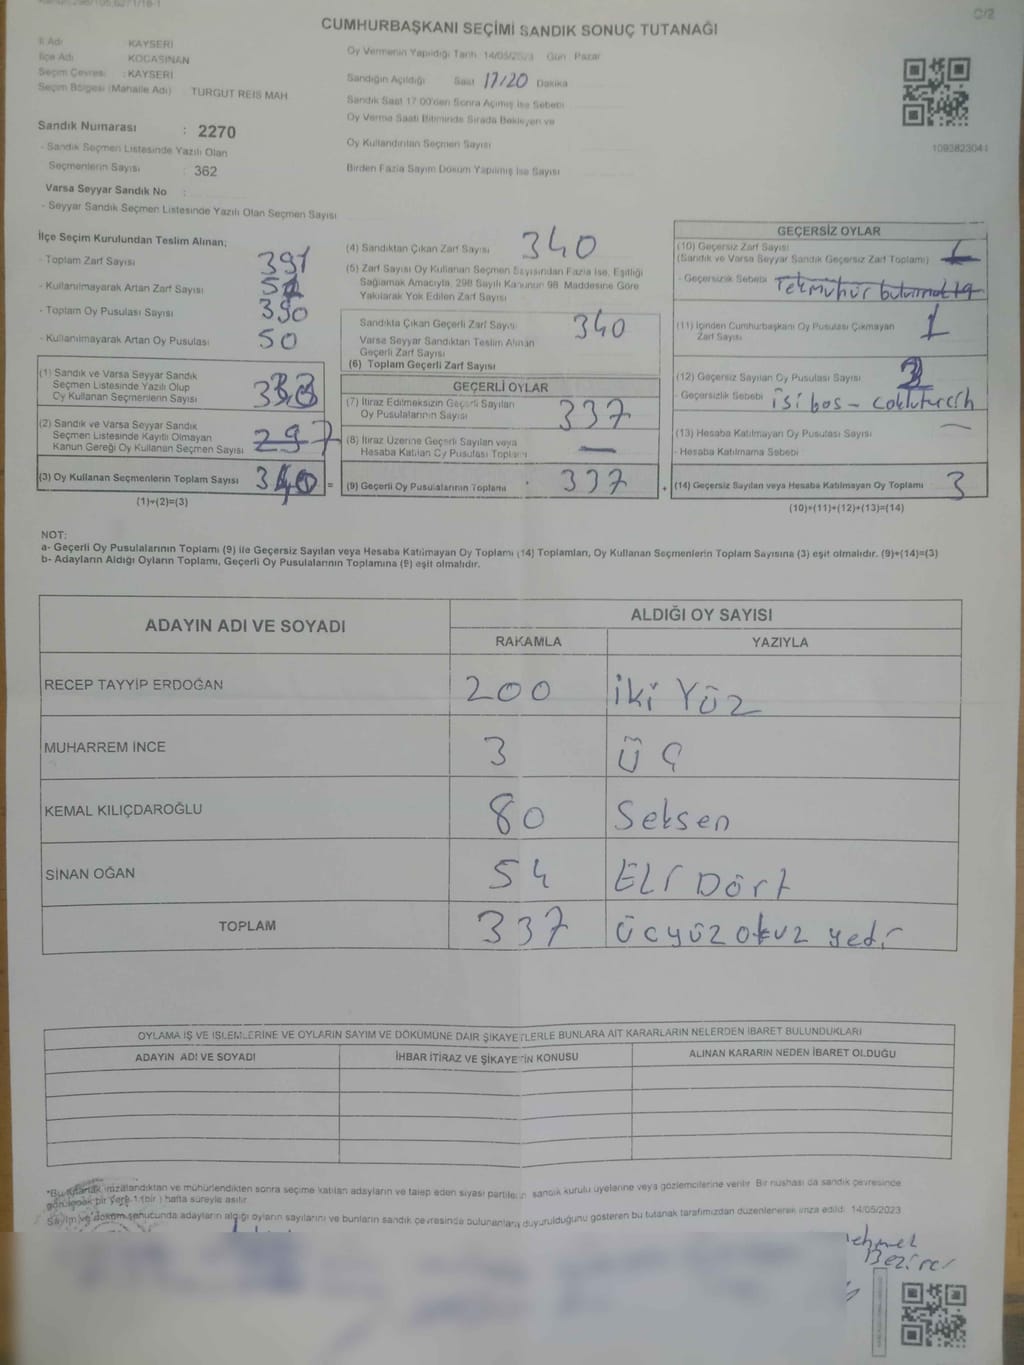 C/2
CUMHURBAŞKANI SEÇİMİ SANDIK SONUÇ TUTANAĞI
İl Adı KAYSERİ
İlçe Adı KOCASİNAN
Seçim Çevresi : KAYSERİ
Seçim Bölgesi (Mahalle Adı) TURGUT REİS MAH
Sandık Numarası : 2270
- Sandık Seçmen Listesinde Yazılı Olan
Seçmenlerin Sayısı : 362
Varsa Seyyar Sandık No :
- Seyyar Sandık Seçmen Listesinde Yazılı Olan Seçmen Sayısı
Oy Vermenin Yapıldığı Tarih 14/05/2023 Gün Pazar
Sandığın Açıldığı Saat 17/20 Dakika
Sandık Saat 17:00'den Sonra Açılmış İse Sebebi
Oy Verme Saati Bitiminde Sırada Bekleyen ve
Oy Kullandırılan Seçmen Sayısı
Birden Fazla Sayım Döküm Yapılmış İse Sayısı
1093823044
İlçe Seçim Kurulundan Teslim Alınan;
- Toplam Zarf Sayısı 391
- Kullanılmayarak Artan Zarf Sayısı
- Toplam Oy Pusulası Sayısı 390
- Kullanılmayarak Artan Oy Pusulası 50
(1) Sandık ve Varsa Seyyar Sandık
Seçmen Listesinde Yazılı Olup
Oy Kullanan Seçmenlerin Sayısı
(2) Sandık ve Varsa Seyyar Sandık
Seçmen Listesinde Kayıtlı Olmayan
Kanun Gereği Oy Kullanan Seçmen Sayısı 297
(3) Oy Kullanan Seçmenlerin Toplam Sayısı 340 =
(1)+(2)=(3)
(4) Sandıktan Çıkan Zarf Sayısı 340
(5) Zarf Sayısı Oy Kullanan Seçmen Sayısından Fazla İse, Eşitliği
Sağlamak Amacıyla, 298 Sayılı Kanunun 98. Maddesine Göre
Yakılarak Yok Edilen Zarf Sayısı
Sandıkta Çıkan Geçerli Zarf Sayısı 340
Varsa Seyyar Sandıktan Teslim Alınan
Geçerli Zarf Sayısı
(6) Toplam Geçerli Zarf Sayısı
GEÇERLİ OYLAR
(7) İtiraz Edilmeksizin Geçerli Sayılan
Oy Pusulalarının Sayısı 337
(8) İtiraz Üzerine Geçerli Sayılan veya
Hesaba Katılan Oy Pusulası Toplamı —
(9) Geçerli Oy Pusulalarının Toplamı : 337 +
GEÇERSİZ OYLAR
(10) Geçersiz Zarf Sayısı
(Sandık ve Varsa Seyyar Sandık Geçersiz Zarf Toplamı) 1
- Geçersizlik Sebebi Tekmühür
(11) İçinden Cumhurbaşkanı Oy Pusulası Çıkmayan
Zarf Sayısı 1
(12) Geçersiz Sayılan Oy Pusulası Sayısı
- Geçersizlik Sebebi İsi boş -
(13) Hesaba Katılmayan Oy Pusulası Sayısı —
- Hesaba Katılmama Sebebi
(14) Geçersiz Sayılan veya Hesaba Katılmayan Oy Toplamı 3
(10)+(11)+(12)+(13)=(14)
NOT:
a- Geçerli Oy Pusulalarının Toplamı (9) ile Geçersiz Sayılan veya Hesaba Katılmayan Oy Toplamı (14) Toplamları, Oy Kullanan Seçmenlerin Toplam Sayısına (3) eşit olmalıdır. (9)+(14)=(3)
b- Adayların Aldığı Oyların Toplamı, Geçerli Oy Pusulalarının Toplamına (9) eşit olmalıdır.
ADAYIN ADI VE SOYADI ALDIĞI OY SAYISI
RAKAMLA YAZIYLA
RECEP TAYYİP ERDOĞAN 200 İki Yüz
MUHARREM İNCE 3 Üç
KEMAL KILIÇDAROĞLU 80 Seksen
SİNAN OĞAN 54 ELİ Dört
TOPLAM 337 Ücyüz otuz yedi
OYLAMA İŞ VE İŞLEMLERİNE VE OYLARIN SAYIM VE DÖKÜMÜNE DAİR ŞİKAYETLERLE BUNLARA AİT KARARLARIN NELERDEN İBARET BULUNDUKLARI
ADAYIN ADI VE SOYADI İHBAR İTİRAZ VE ŞİKAYETİN KONUSU ALINAN KARARIN NEDEN İBARET OLDUĞU
*Bu tutanak imzalandıktan ve mühürlendikten sonra seçime katılan adayların ve talep eden siyasi partilerin sandık kurulu üyelerine veya gözlemcilerine verilir. Bir nüshası da sandık çevresinde
görülecek bir yere 1 (bir) hafta süreyle asılır.
Sayım ve döküm sonucunda adayların aldığı oyların sayılarını ve bunların sandık çevresinde bulunanlara duyurulduğunu gösteren bu tutanak tarafımızdan düzenlenerek imza edildi. 14/05/2023